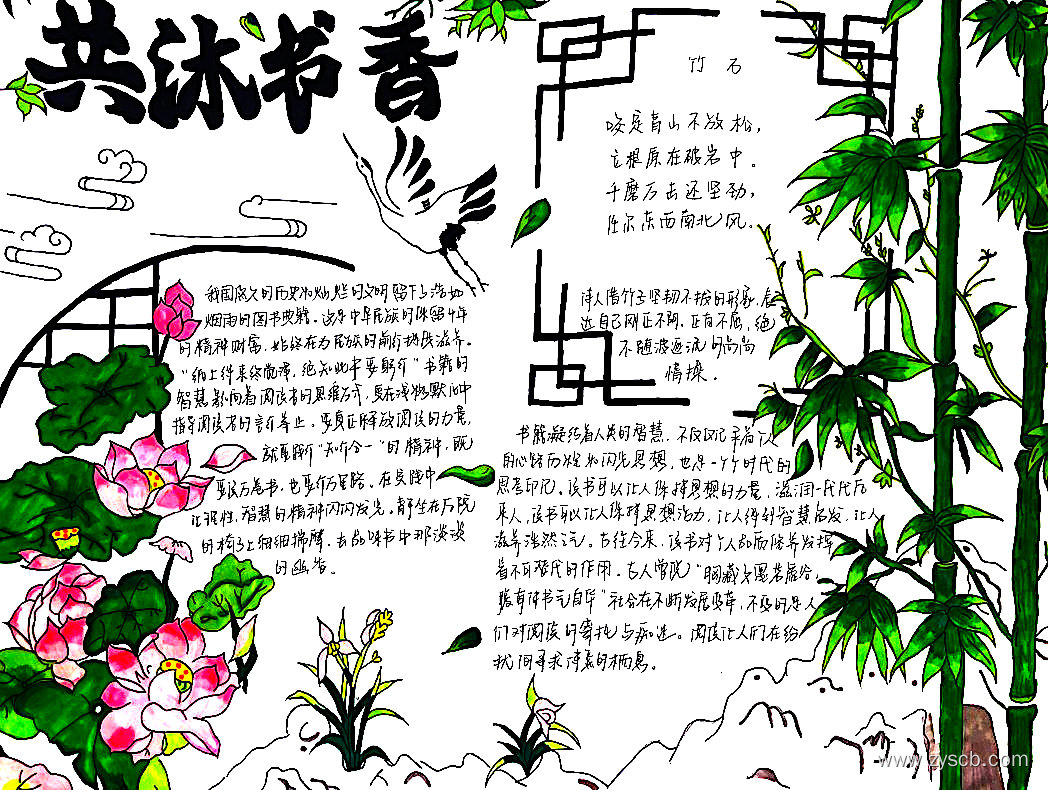 共沐书香
竹石
咬定青山不放松，
立根原在破岩中。
千磨万击还坚劲，
任尔东西南北风。
诗人借竹子坚韧不拔的形象，表
达自己刚正不阿、正直不屈，绝
不随波逐流的高尚
情操。
我国悠久的历史和灿烂的文明留下了浩如
烟海的图书典籍。这是中华民族的
的精神财富，始终在为民族的前行提供滋养。
“纸上得来终觉浅，绝知此事要躬行”书籍的
智慧影响着阅读者的思维方式，更在潜移默化中
指导阅读者的言行举止。要真正释放阅读的力量，
就要践行“知行合一”的精神，既
要读万卷书，也要行万里路。在实践中
让理性、智慧的精神闪闪发光。静坐在后院
的椅子上细细揣摩，去品味书中那淡淡
的幽香。
书籍凝结着人类的智慧，不仅仅记录着个人
的心路历程和闪光思想，也是一个个时代的
思想印记。读书可以让人保持思想的力量，滋润一代代后
来人，读书可以让人保持思想活力，让人得到智慧启发，让人
滋养浩然之气。古往今来，读书对个人品质培养发挥
着不可替代的作用。古人曾说“胸藏文墨若虚谷，
腹有诗书气自华”社会在不断发展变革，不变的是人
们对阅读的寄托与痴迷。阅读让人们在纷
扰间寻找诗意的栖息。
www.zyscb.com